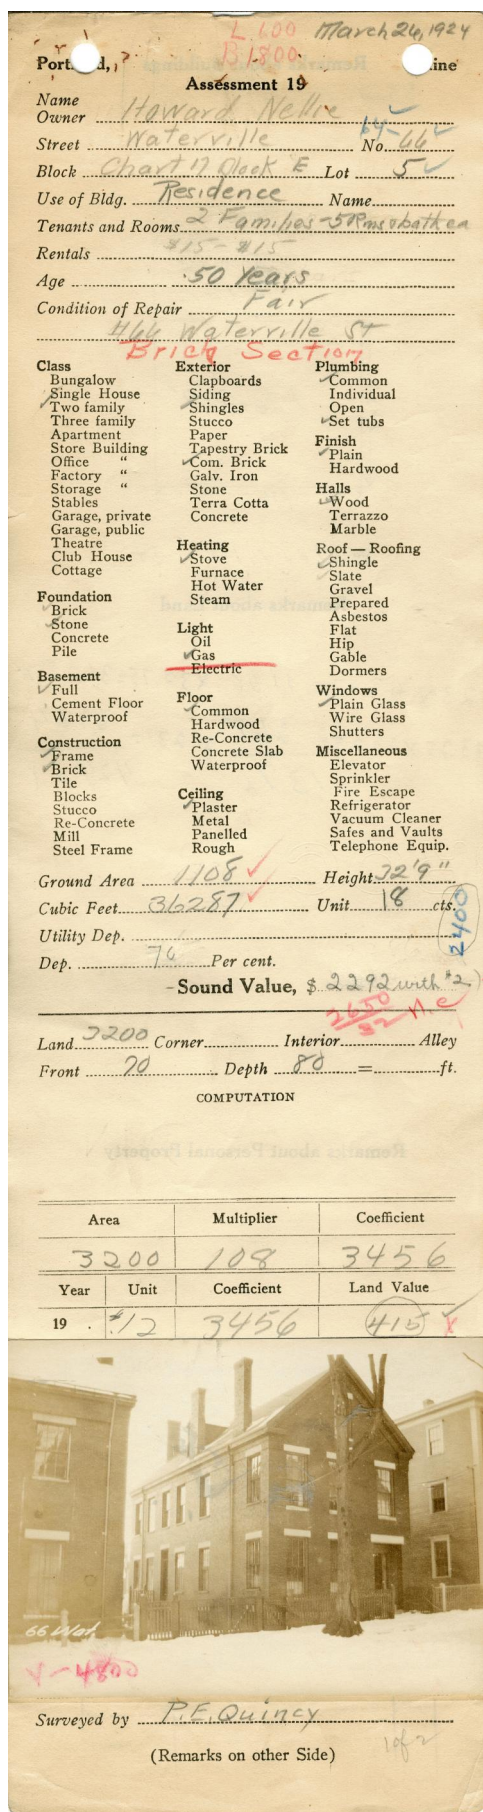 L. 600 March 26, 1924
B. 1800
Port d, ine
Assessment 19
Name
Owner Howard Nellie
Street Waterville No. 64-66
Block Chart 17 Block E Lot 5
Use of Bldg. Residence Name
Tenants and Rooms 2 Families - 5 Rms & bath ea
Rentals $15 - $15
Age 50 Years
Condition of Repair Fair
#66 Waterville St
Brick Section
Class
Bungalow
Single House
Two family
Three family
Apartment
Store Building
Office "
Factory "
Storage "
Stables
Garage, private
Garage, public
Theatre
Club House
Cottage
Foundation
Brick
Stone
Concrete
Pile
Basement
Full
Cement Floor
Waterproof
Construction
Frame
Brick
Tile
Blocks
Stucco
Re-Concrete
Mill
Steel Frame
Exterior
Clapboards
Siding
Shingles
Stucco
Paper
Tapestry Brick
Com. Brick
Galv. Iron
Stone
Terra Cotta
Concrete
Heating
Stove
Furnace
Hot Water
Steam
Light
Oil
Gas
Electric
Floor
Common
Hardwood
Re-Concrete
Concrete Slab
Waterproof
Ceiling
Plaster
Metal
Panelled
Rough
Plumbing
Common
Individual
Open
Set tubs
Finish
Plain
Hardwood
Halls
Wood
Terrazzo
Marble
Roof — Roofing
Shingle
Slate
Gravel
Prepared
Asbestos
Flat
Hip
Gable
Dormers
Windows
Plain Glass
Wire Glass
Shutters
Miscellaneous
Elevator
Sprinkler
Fire Escape
Refrigerator
Vacuum Cleaner
Safes and Vaults
Telephone Equip.
Ground Area 1108 Height 32'9"
Cubic Feet 36287 Unit 18 cts.
2400
Utility Dep.
Dep. Per cent.
Sound Value, $ 2292 with #2)
2650
Land 3200 Corner Interior Alley
Front Depth 80 = ft.
COMPUTATION
Area Multiplier Coefficient
3200 108 3456
Year Unit Coefficient Land Value
19 . $12 3456 415
66 Wat.
4800
Surveyed by P.E. Quincy
(Remarks on other Side)
1 of 2